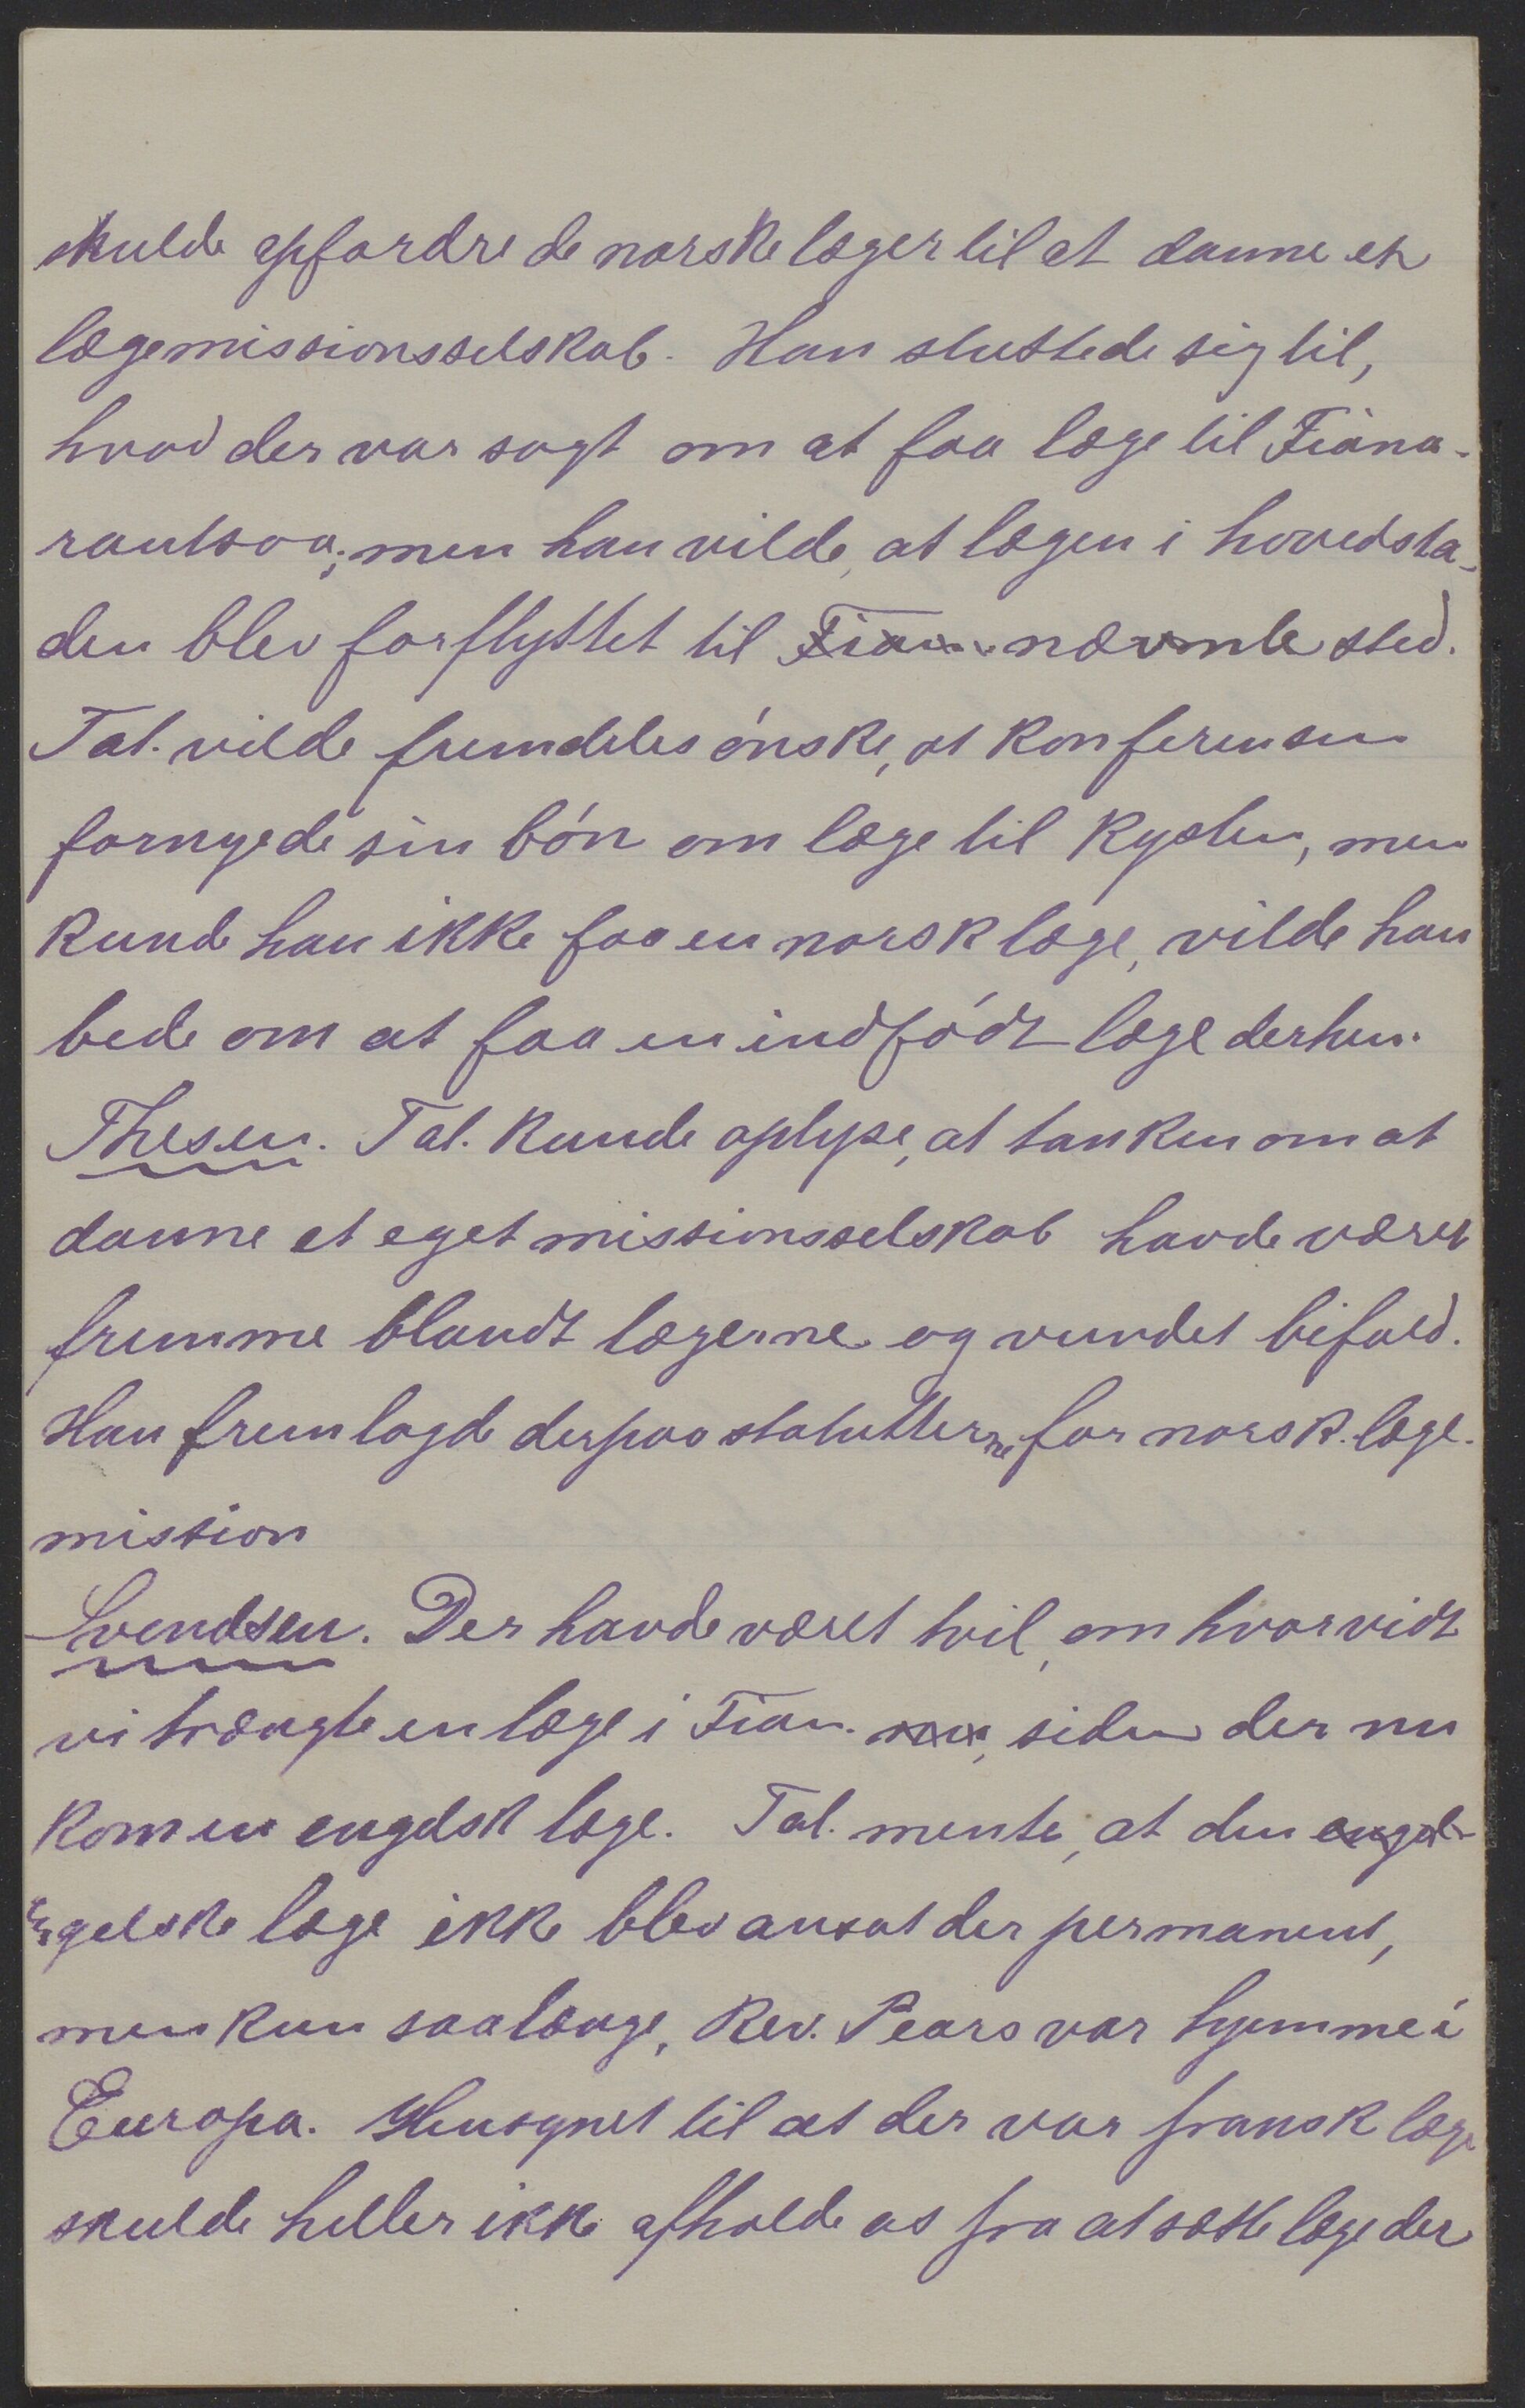 skulde opfordre de norske læger til at danne et
lægemissionsselskab. Han sluttede sig til,
hvad der var sagt om at faa læge til Fiana-
rantsoa; men han vilde, at lægen i hovedsta-
den blev forflyttet til Fian. nævnte sted.
Tal. vilde fremdeles ónske, at konferensen
fornyede sin bón om læge til kysten, men
kunde han ikke faa en norsk læge, vilde han
bede om at faa en indfódt læge derhen.
Thesen. Tal. kunde oplyse, at tanken om at
danne et eget missionsselskab havde været
fremme blandt lægerne og vundet bifald.
Han fremlagde derpaa statutterne for norsk. læge-
mission
Svendsen. Der havde været tvil, om hvorvidt
vi trængte en læge i Fian. nu, siden der nu
kom en engelsk læge. Tal. mente, at den engel-
engelske læge ikke blev ansat der permanent,
men kun saalænge, Rev. Pears var hjemme i
Europa. Hensynet til at der var fransk læge
skulde heller ikke afholde os fra at sætte læge der